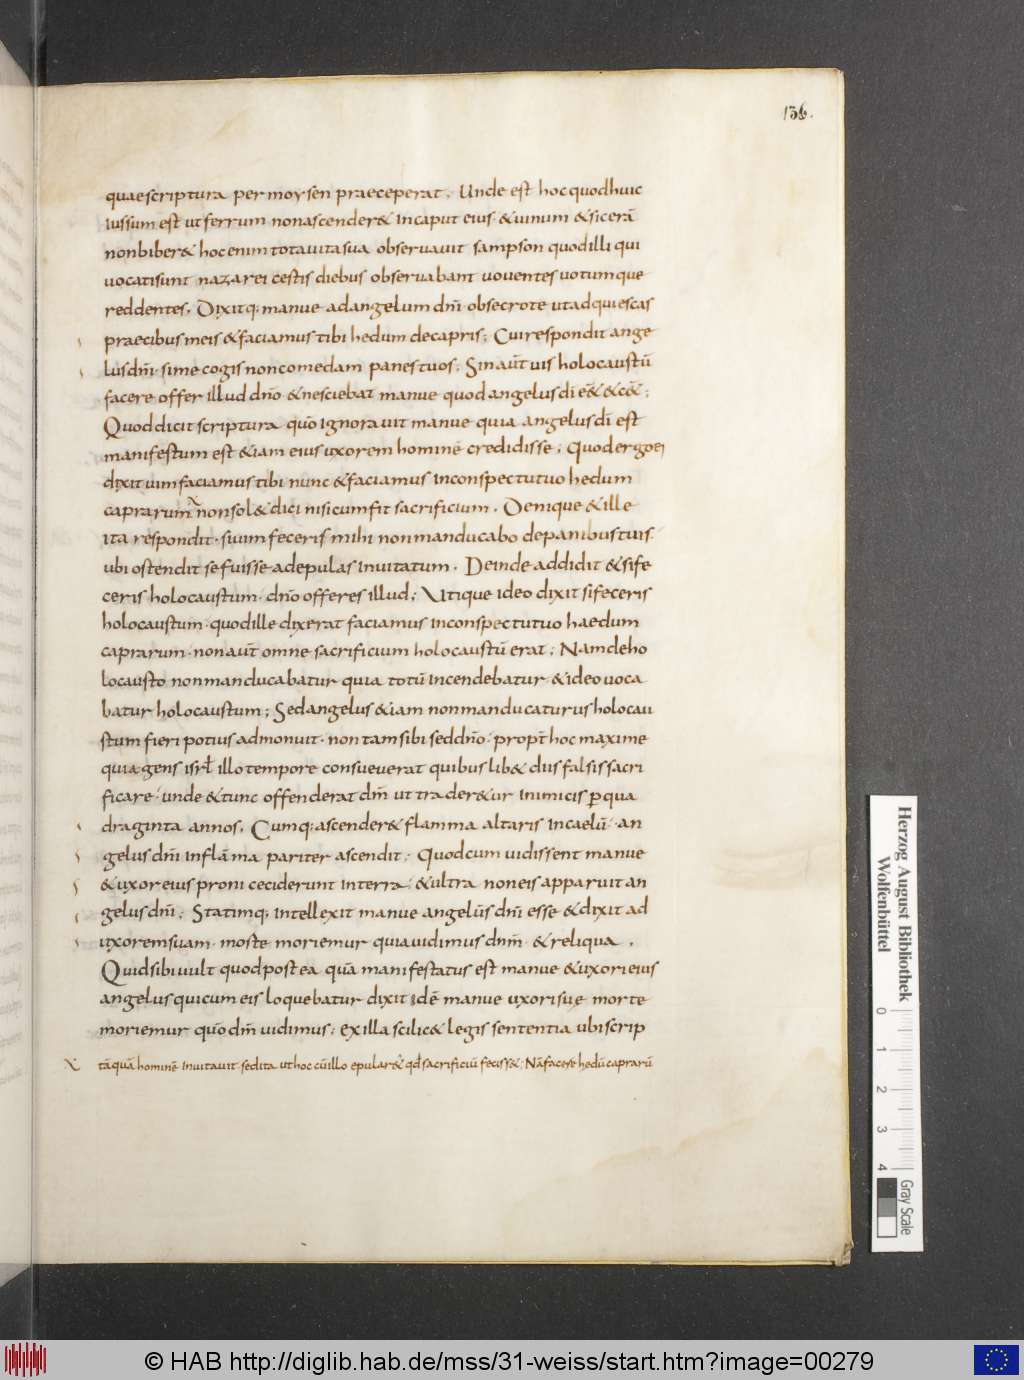 136.
quaescriptura permoysen praeceperat. Unde est hocquodhuic
iussum est utferrum nonascender& incaput eius· &uinum &sicerā
nonbiber& hocenim totauitasua obseruauit sampson quodilli qui
uocatisunt nazarei cestis diebus obseruabant uouentes uotumque
reddentes. Dixitq; manue adangelum dn̄i obsecrote utadquiescas
praecibus meis &faciamus tibi hedum decapris; Cuirespondit ange
lusdn̄i· sime cogis noncomedam panes tuos; Sinaūt uis holocaustū
facere offer illud dn̄o &nesciebat manue quod angelus dī eē& &cē&;
Quoddicit scriptura quō ignorauit manue quia angelus dī est
manifestum est &iam eius uxorem hominē credidisse; Quodergoei
dixit uim faciamus tibi nunc &faciamus inconspectutuo hedum
caprarum nonsol& dici nisicumfit sacrificium. Denique &ille
ita respondit· siuim feceris mihi nonmanducabo depanibustuis·
ubi ostendit sefuisse adepulas inuitatum· Deinde addidit &sife
ceris holocaustum· dn̄o offeres illud; Utique ideo dixit sifeceris
holocaustum· quodille dixerat faciamus inconspectutuo haedum
caprarum· nonaūt omne sacrificium holocaustū erat; Namdeho
locausto nonmanducabatur quia totū incendebatur &ideo uoca
batur holocaustum; Sedangelus &iam nonmanducaturus holocau
stum fieri potius admonuit· non tam sibi seddn̄o· propt̄ hoc maxime
quia gens isrł illo tempore consueuerat quibus lib& diis falsis sacri
ficare· unde &tunc offenderat dn̄m ut trader&ur inimicis ꝑqua
draginta annos. Cumq; ascender& flamma altaris incaelū· an
gelus dn̄i inflāma pariter ascendit; Quodcum uidissent manue
&uxoreius proni ceciderunt interra; &ultra noneis apparuit an
gelus dn̄i; Statimq; intellexit manue angelūs dn̄i esse &dixit ad
uxoremsuam· morte moriemur quiauidimus dn̄m· &reliqua.
Quidsibiuult quodpostea quā manifestatus est manue &uxorieius
angelus quicum eis loquebatur dixit idē manue uxorisue morte
moriemur quō dn̄m uidimus; exilla scilic& legis sententia ubiscrip
tāquā hominē inuitauit· sedita uthoc cūillo epular& qđ sacrificiū feciss&; Nā facere hedū caprarū
Herzog August Bibliothek
Wolfenbüttel
0 1 2 3 4
Gray Scale
© HAB http://diglib.hab.de/mss/31-weiss/start.htm?image=00279